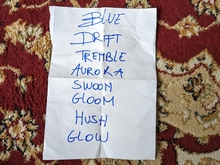 BLUE
DRIFT
TREMBLE
AURORA
SWOON
GLOOM
HUSH
GLOW